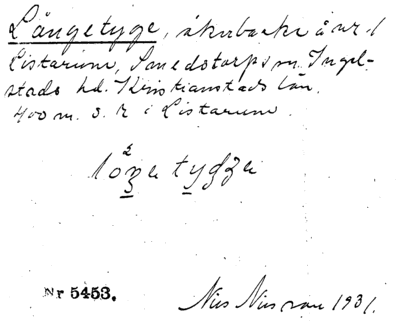 Långetyge, åkerbacke å nr 1
Listarum, Smedstorps sn. Ingel-
stads hd. Kristianstads län.
400 m. s. k i Listarum.
Nr 5453.
Nils Nilsson 1931.